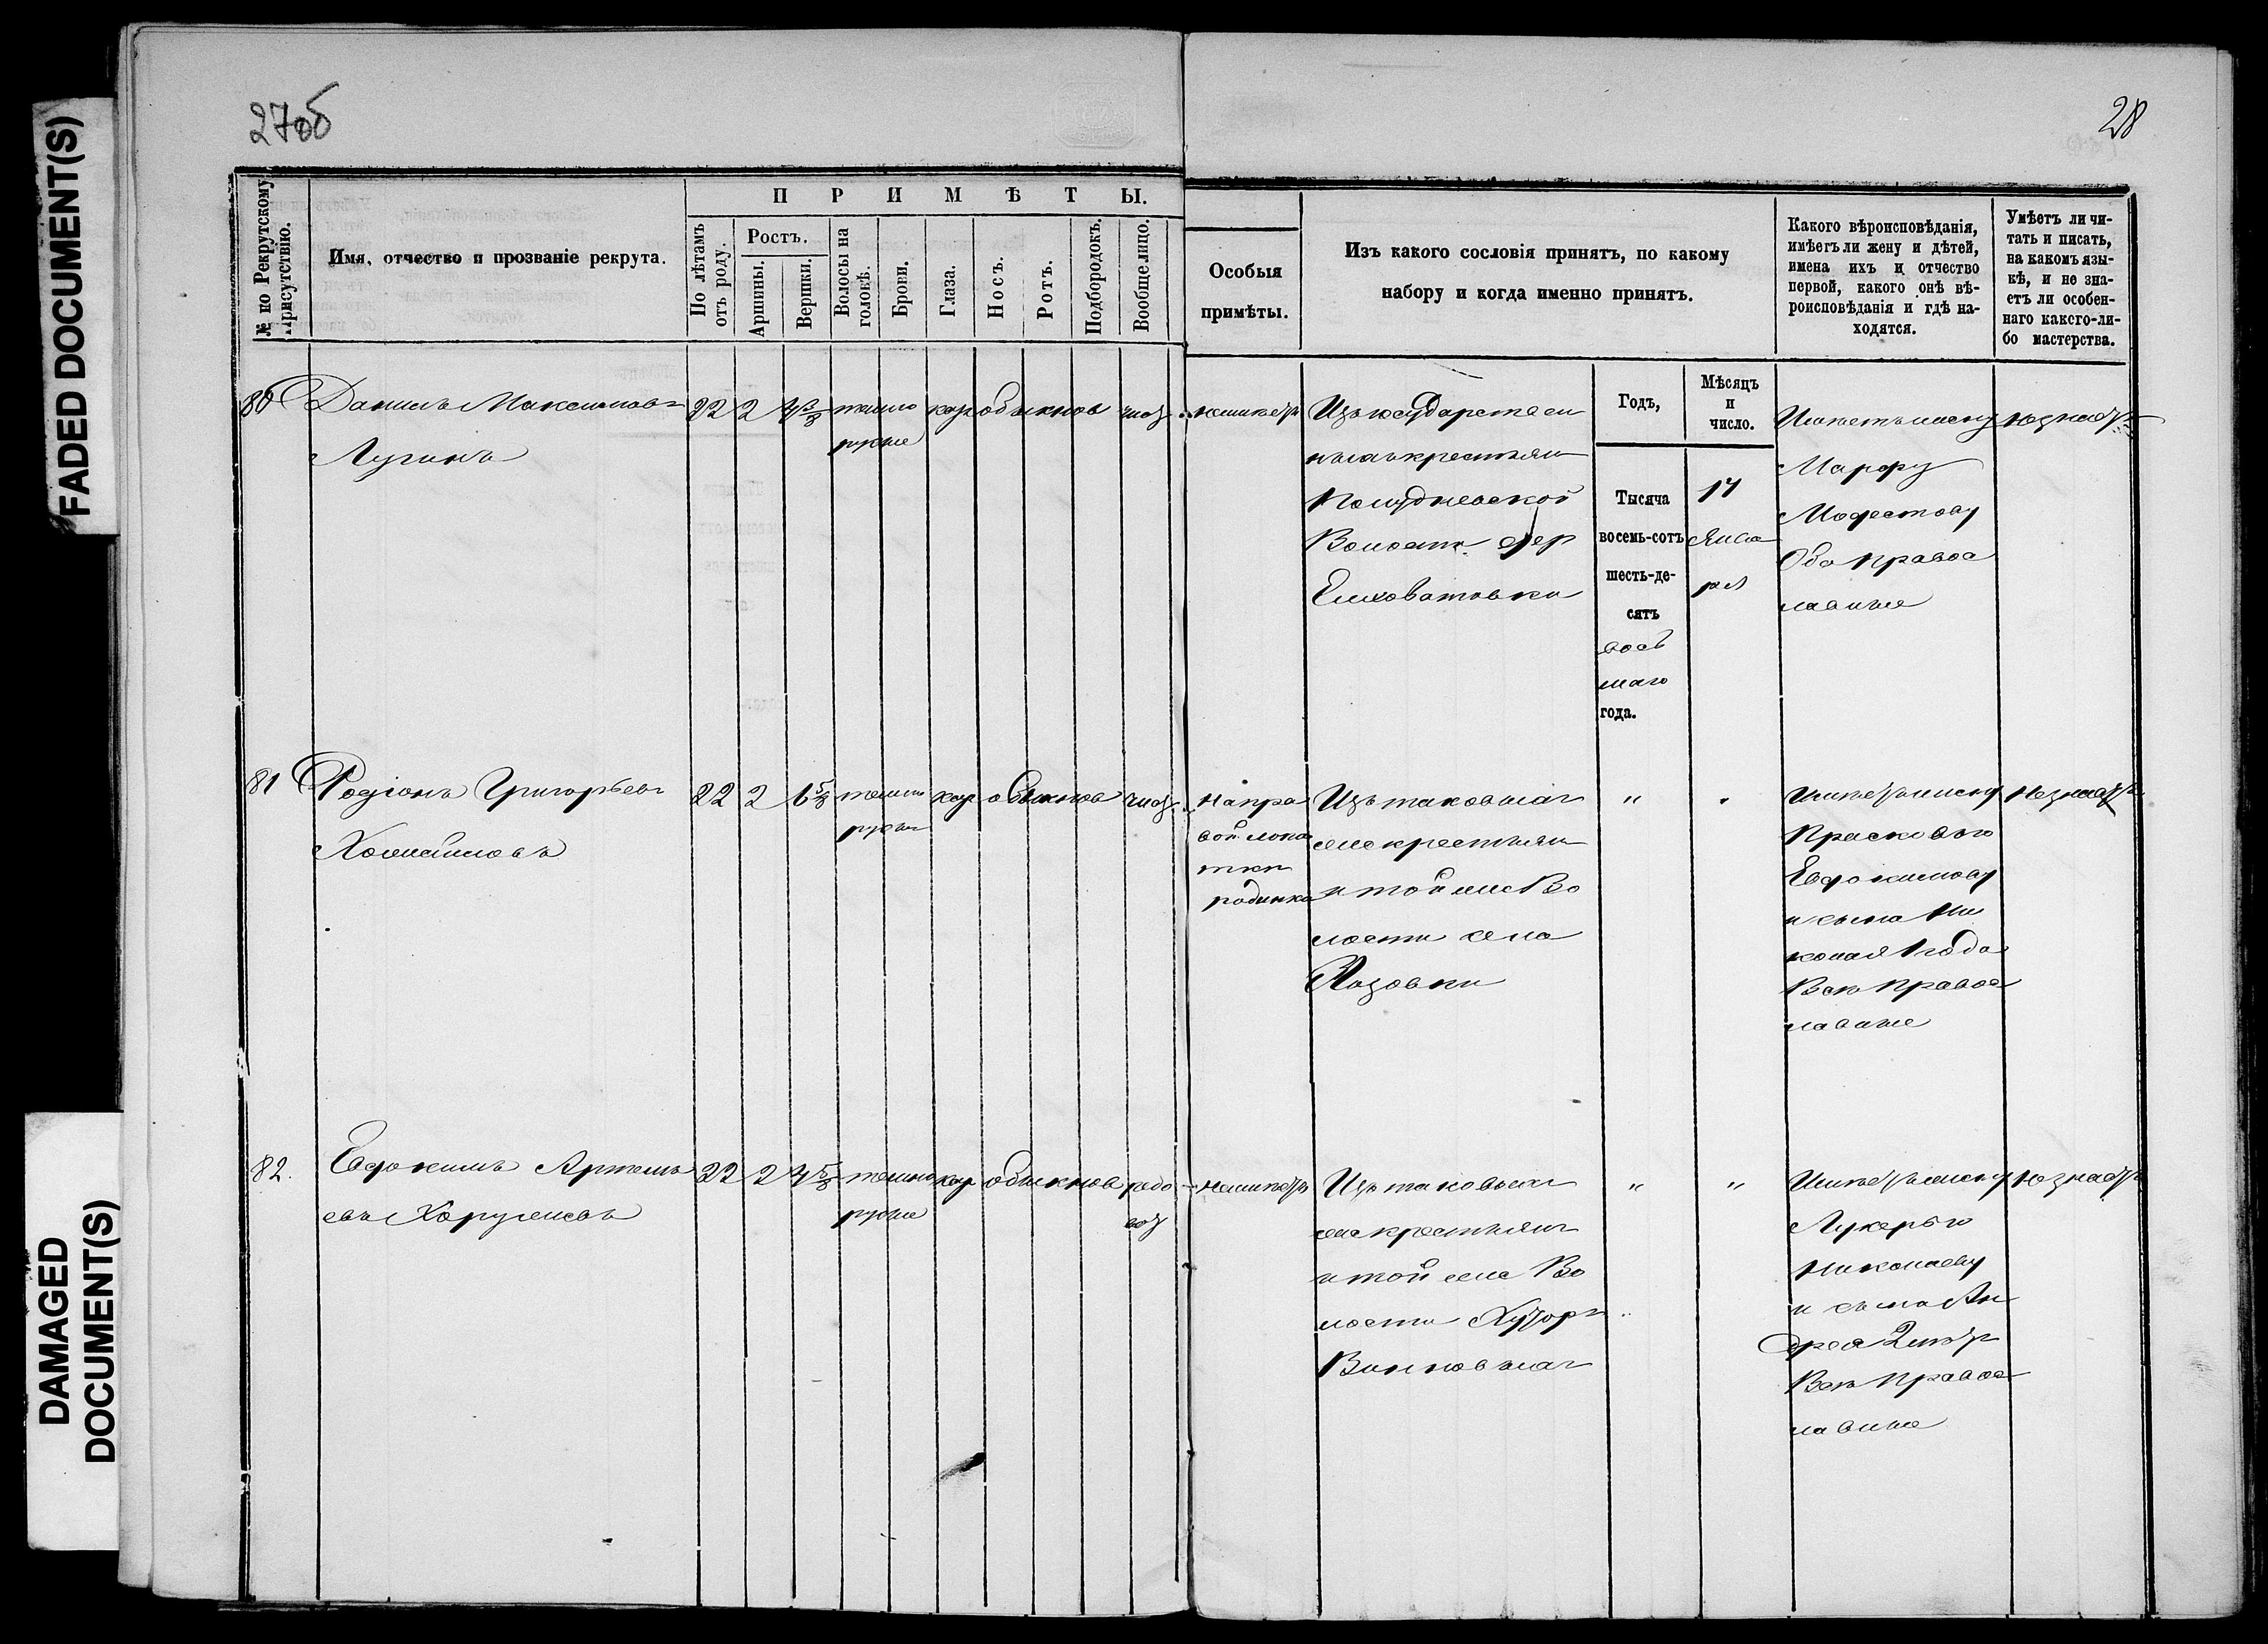 FADED DOCUMENT(S)
DAMAGED
DOCUMENT(S)
27об
28
№ по Рекрутскому
Присутствію.
Имя, отчество и прозваніе рекрута.
ПРИМѢТЫ.
По лѣтамъ
отъ роду.
Ростъ.
Аршины.
Вершки.
Волосы на
головѣ.
Брови.
Глаза.
Носъ.
Ротъ.
Подбородокъ.
Вообще лицо.
Особыя
примѣты.
Изъ какого сословія принятъ, по какому
набору и когда именно принятъ.
Какого вѣроисповѣданія,
имѣетъ ли жену и дѣтей,
имена ихъ и отчество
первой, какого онѣ вѣ-
роисповѣданія и гдѣ на-
ходятся.
Умѣетъ ли чи-
тать и писать,
на какомъ язы-
кѣ, и не зна-
етъ ли особен-
наго какого-ли-
бо мастерства.
Годъ,
Мѣсяцъ
и
число.
80
Данилъ Максимовъ
Лугинъ
22
2
темно
русые
кар
обыкнов
чис
неимѣетъ
Изъ государствен
ныхъ крестьян
Полудневской
Волости дер
Елховатовки
Тысяча
восемь-сотъ
шесть-де-
сятъ
вось
маго
года.
17
Янва
ря
Имѣетъ жену
Марфу
Модестову
Оба правос
лавные
незнаетъ
81
Родіонъ Григорьевъ
22
2
темно
русые
кар
обыкнов
чис
На пра
вой лопа
тки
родинка
Изъ таковыхъ
же крестьян
и той же Во
лости села
"
"
Имѣетъ жену
Прасковью
Евдокимову
и сына Ни
колая 1 года
Всѣ правос
лавные
Незнаетъ
82.
Евдокимъ Артемь
евъ
22
2
темно
русые
кар
обыкнов
неимѣетъ
Изъ таковыхъ
же крестьянъ
и той же Во
лости Хуторъ
"
"
Имѣетъ жену
Лукерью
Николаеву
и сына Ан
дрея 2 лѣтъ
Всѣ правос
лавные
Незнаетъ